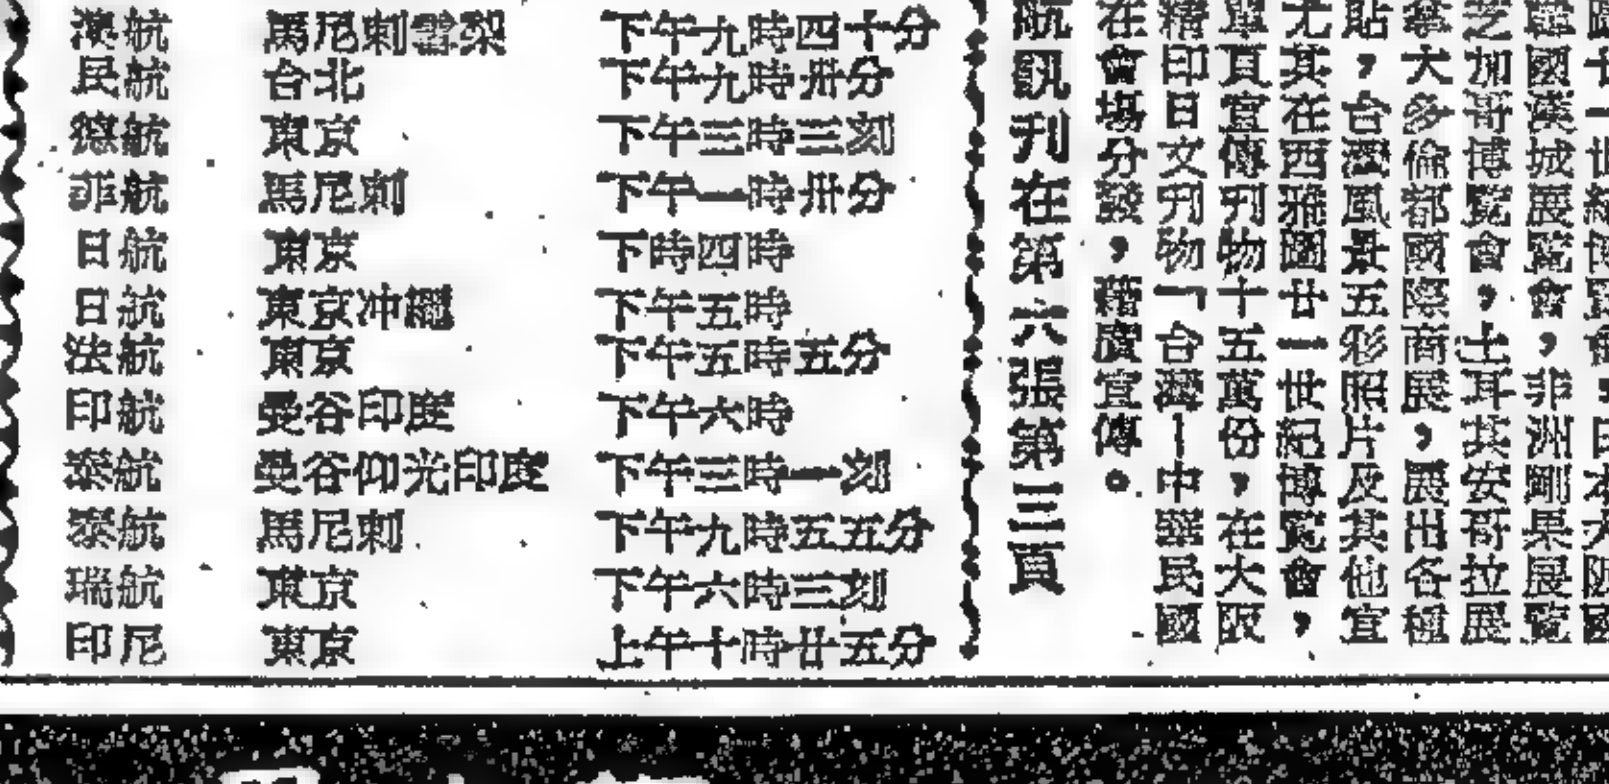 澳航 馬尼剌雪梨 下午九時四十分
民航 台北 下午九時卅分
德航 東京 下午三時三刻
菲航 馬尼剌 下午一時卅分
日航 東京 下時四時
日航 東京冲繩 下午五時
法航 東京 下午五時五分
印航 曼谷印度 下午六時
泰航 曼谷仰光印度 下午三時一刻
泰航 馬尼剌 下午九時五五分
瑞航 東京 下午六時三刻
印尼 東京 上午十時廿五分
國漢城展覽會,非洲剛果展覽
芝加哥博覽會,土耳其安哥拉展
拿大多倫都國際商展,展出各種
貼,台灣風景五彩照片及其他宣
尤其在西雅圖廿一世紀博覽會,
單頁宣傳刊物十五萬份,在大阪
精印日文刊物「台灣—中華民國
在會場分發,藉廣宣傳。
航訊刋在第六張第三頁